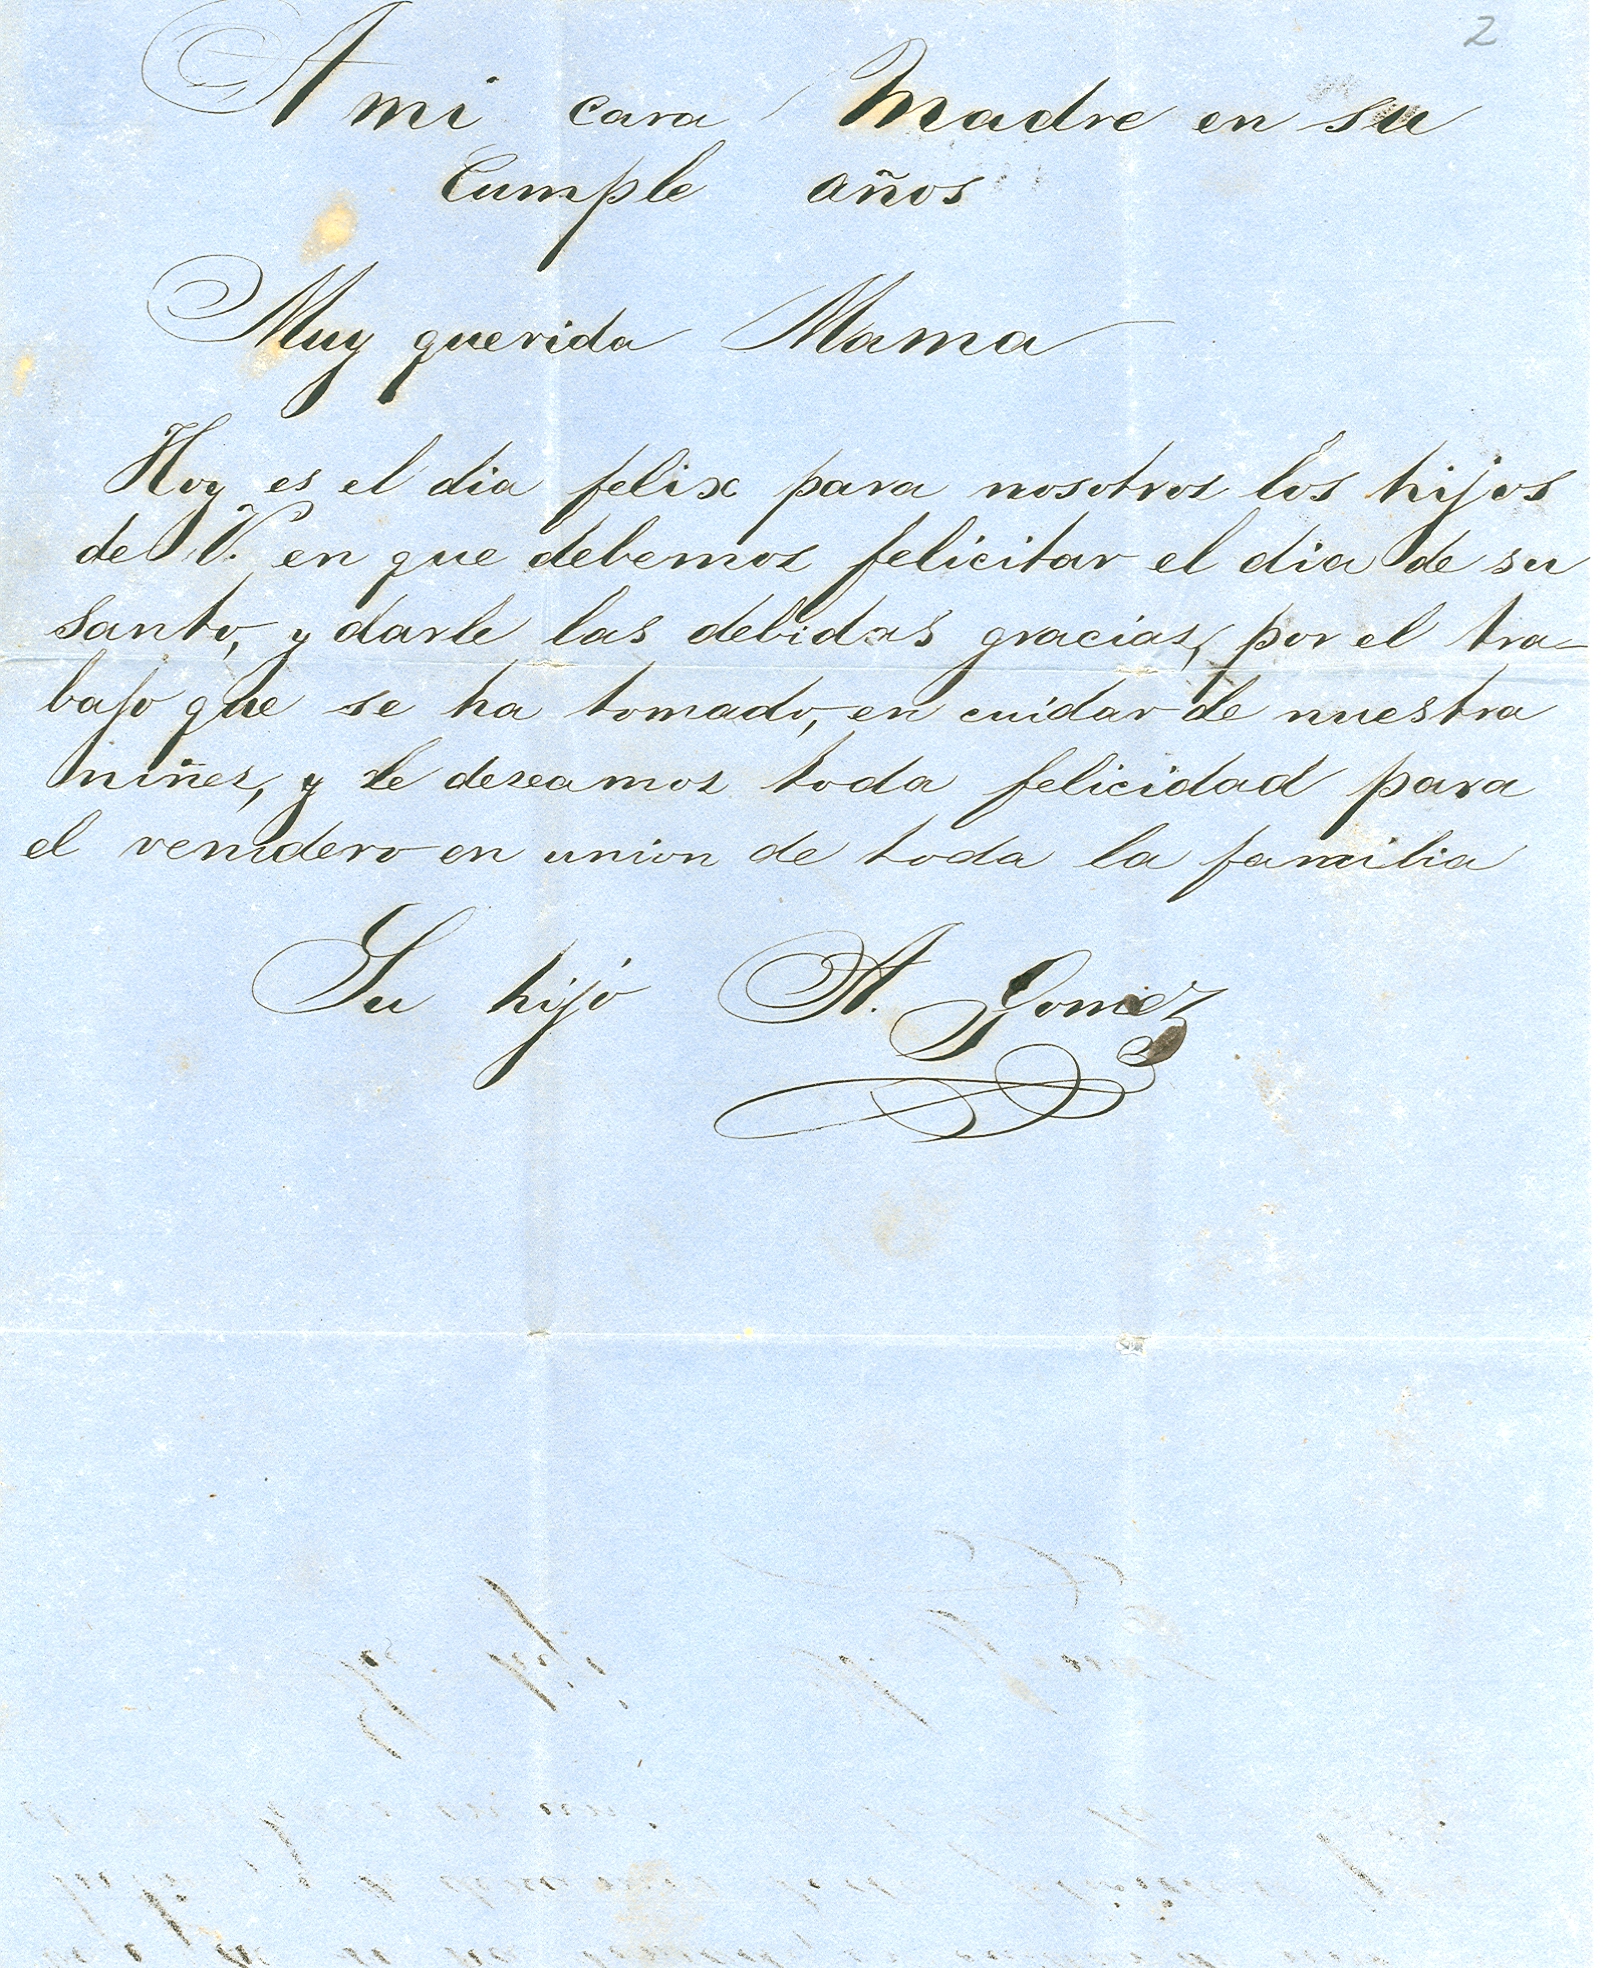 2
A mi cara Madre en su
Cumple años
Muy querida Mama
Hoy es el dia felix para nosotros los hijos
de V. en que debemos felicitar el dia de su
santo, y darle las debidas gracias, por el tra-
bajo que se ha tomado, en cuidar de nuestra
niñes, y le deseamos toda felicidad para
el venidero en union de toda la familia
Su hijo A. Gomez